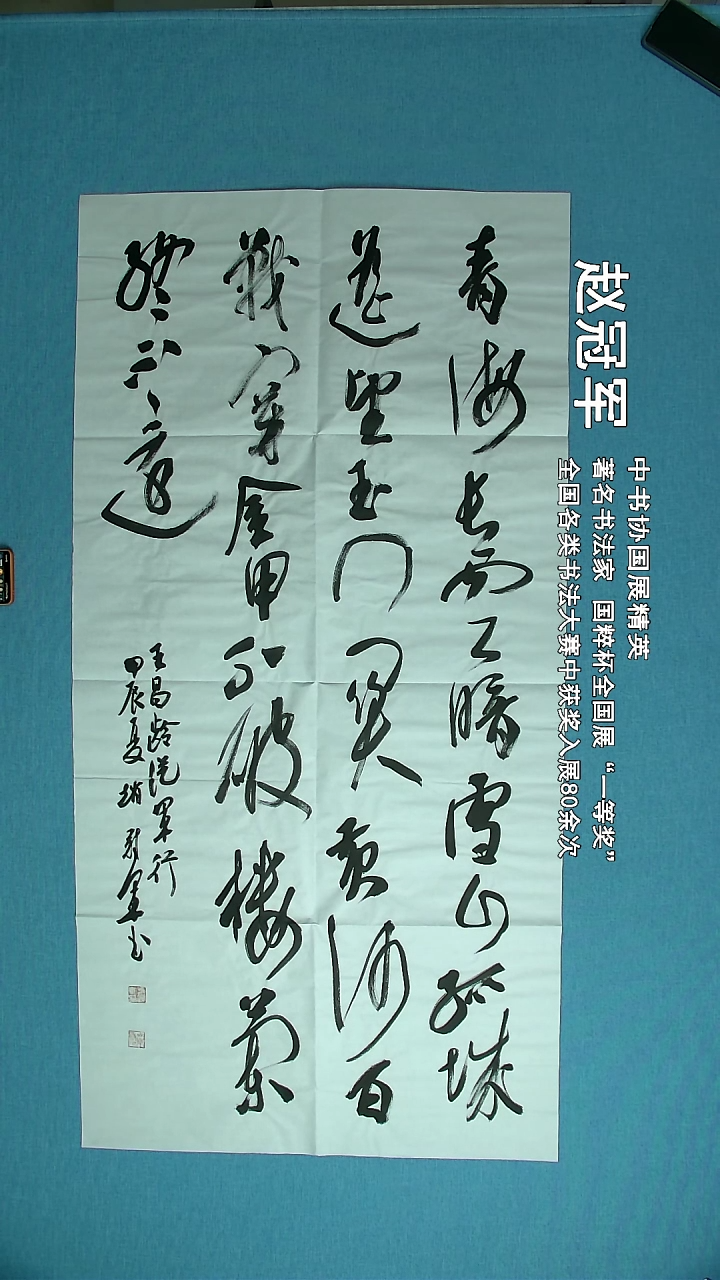 赵冠军
中书协国展精英
著名书法家 国粹杯全国展“一等奖”
全国各类书法大赛中获奖入展80余次
青海長雲暗雪山孤城
遙望玉門関黄沙百
戰穿金甲不破樓蘭
終不還
王昌齡從軍行
甲辰夏趙冠軍书